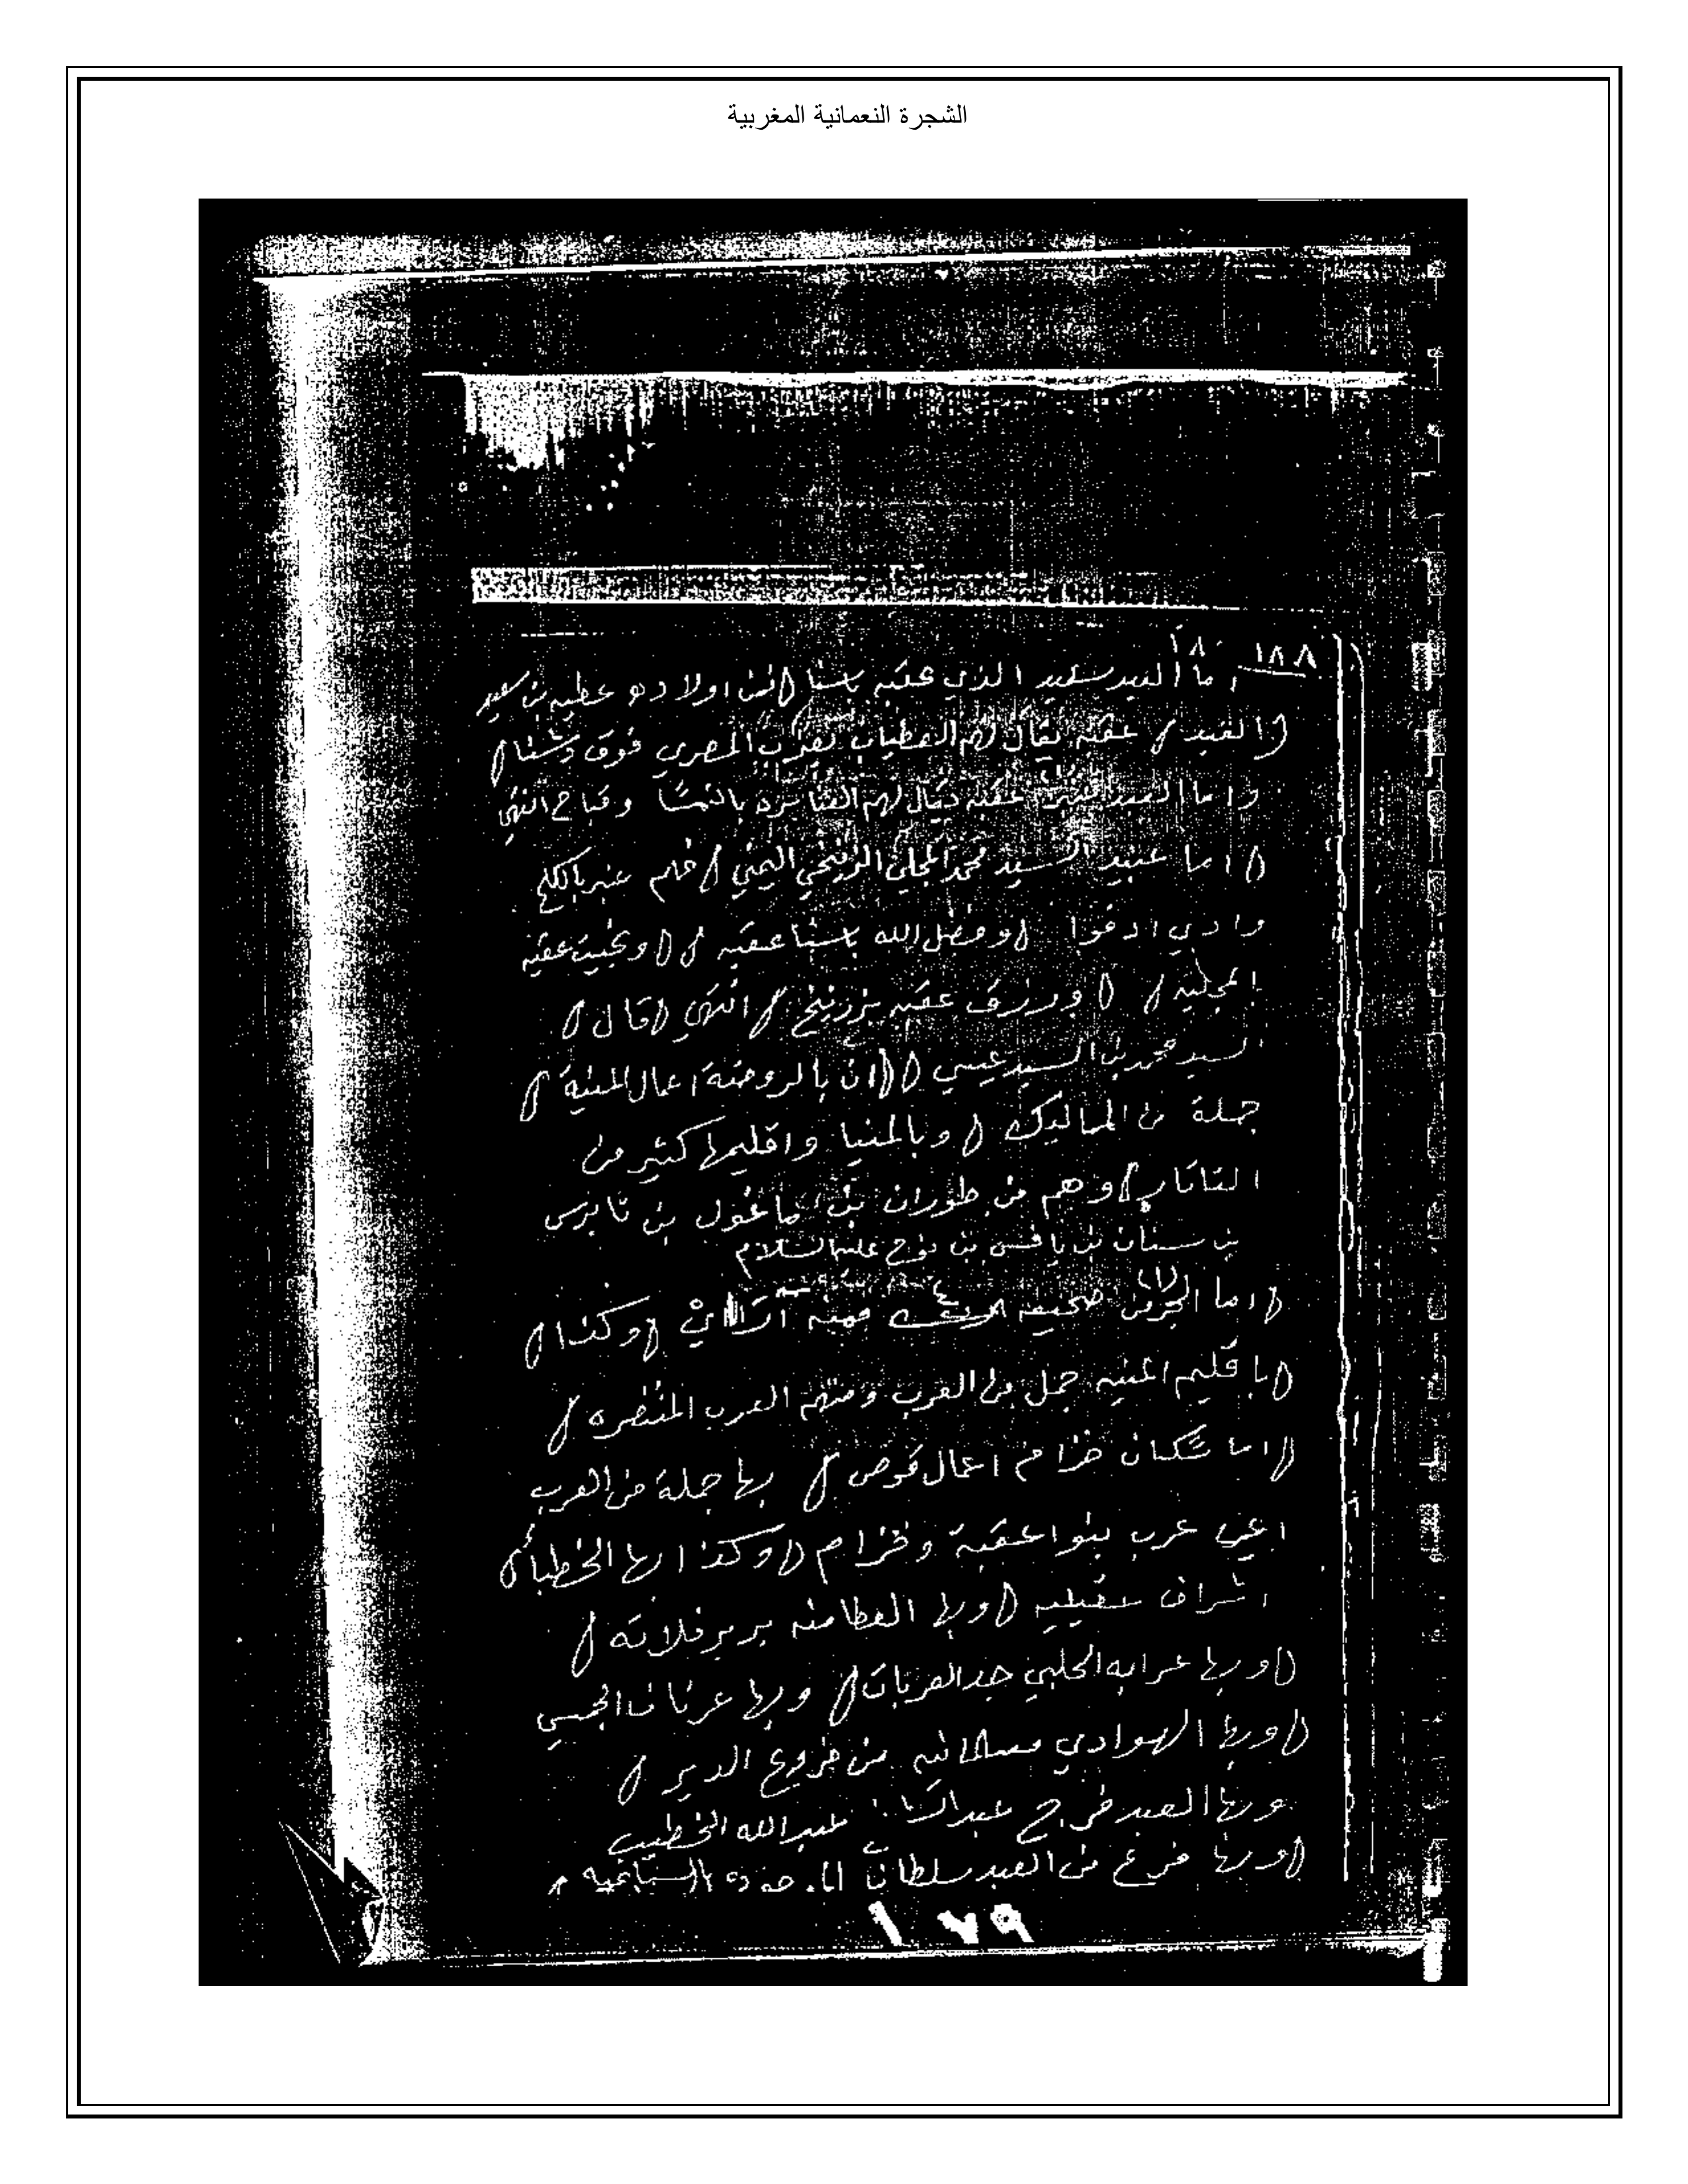 الشجرة النعمانية المغربية
١٨٨
اما العبد سعيد الذي عقبه باسنا اولاده عطيه بن سعيد
العبد عقبه يقال لهم العطيات بعرب المصري فوق دشنا
واما العبد عقبه يقال لهم بالنمسا وقباح انتهى
اما عبيد السيد محمد المجلي الزرنيخي اليمني منهم عنبر بالكلح
وادي ادفوا وفضل الله باسنا عقبه وبخيت عقبه
المجليه ورزق عقبه بزرنيخ انتهى قال
السيد محمد بن السيد عيسي ان بالروضة اعمال المنية
جملة من المماليك وبالمنيا واقليمها كثير من
التاتار وهم من طوران بن ماغول بن تابرس
بن سنان بن يافس بن نوح عليه السلام
اما صحيفه وكذا
باقليم المنيه جمل من العرب ومنهم العرب المتنصره
اما سكان خزام اعمال قوص بها جملة من العرب
اعني عرب بنوا عقبة وخزام وكذا بها الخطبا
اشراف عقيليه وبها العطامنه بربر فلاته
وبها عرابه الحلبي جد العربات وبها عرنات
وبها الهوادي من فروع الدير
وبها العبد فرج عبد عبد الله الخطيب
وبها فرع من العبد سلطان
١٧٩